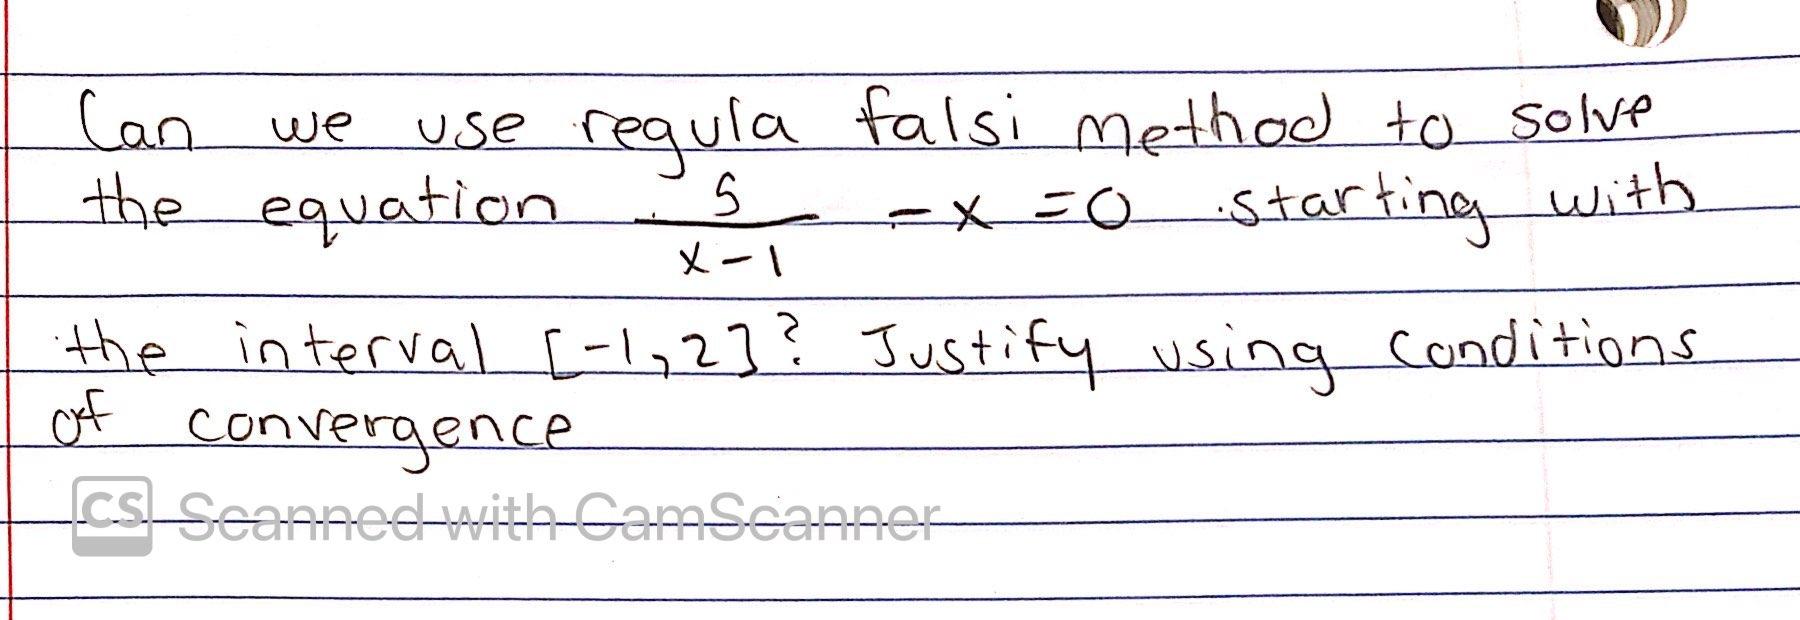 Can we use regula falsi method to solve
the equation 5/(x-1) - x = 0 starting with
the interval [-1,2]? Justify using conditions
of convergence
CS Scanned with CamScanner